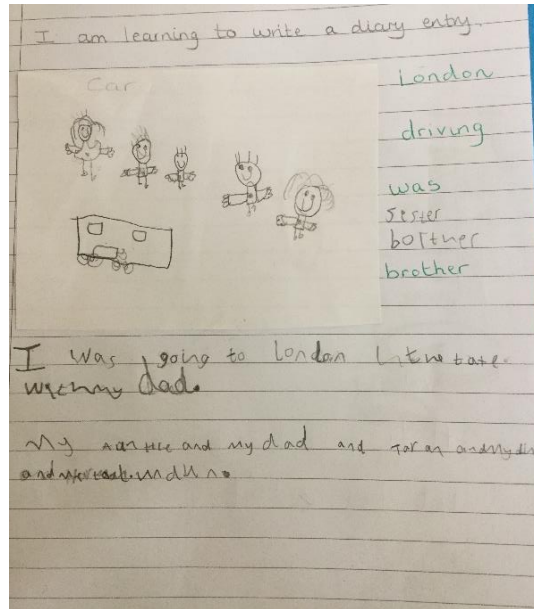 I am learning to write a diary entry.
Car
London
driving
was
sester
bortner
brother
I was going to London
with my dad.
My and my dad and and my
and